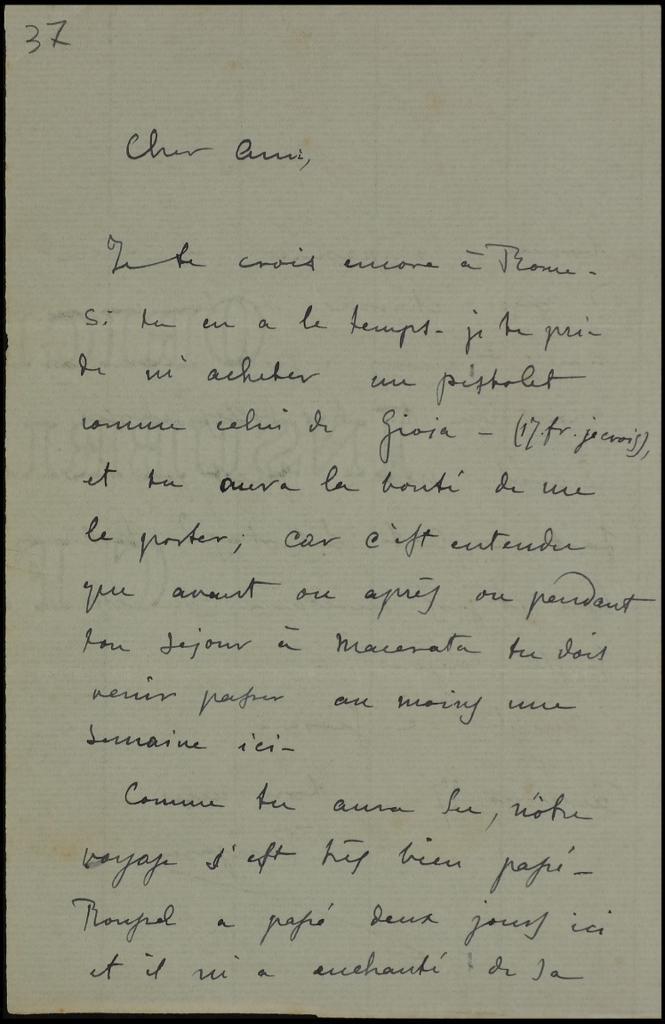 37
Cher Ami,
Je te crois encore à Rome -
Si tu en a le temps - je te prie
de m'acheter un pistolet
comme celui de Gioia - (17. fr. je crois),
et tu aura la bonté de me
le porter; car c'est entendu
que avant ou après ou pendant
ton séjour à Macerata tu dois
venir passer au moins une
semaine ici -
Comme tu aura su, nôtre
voyage s'est très bien passé -
a passé deux jours ici
et il m'a enchanté de sa